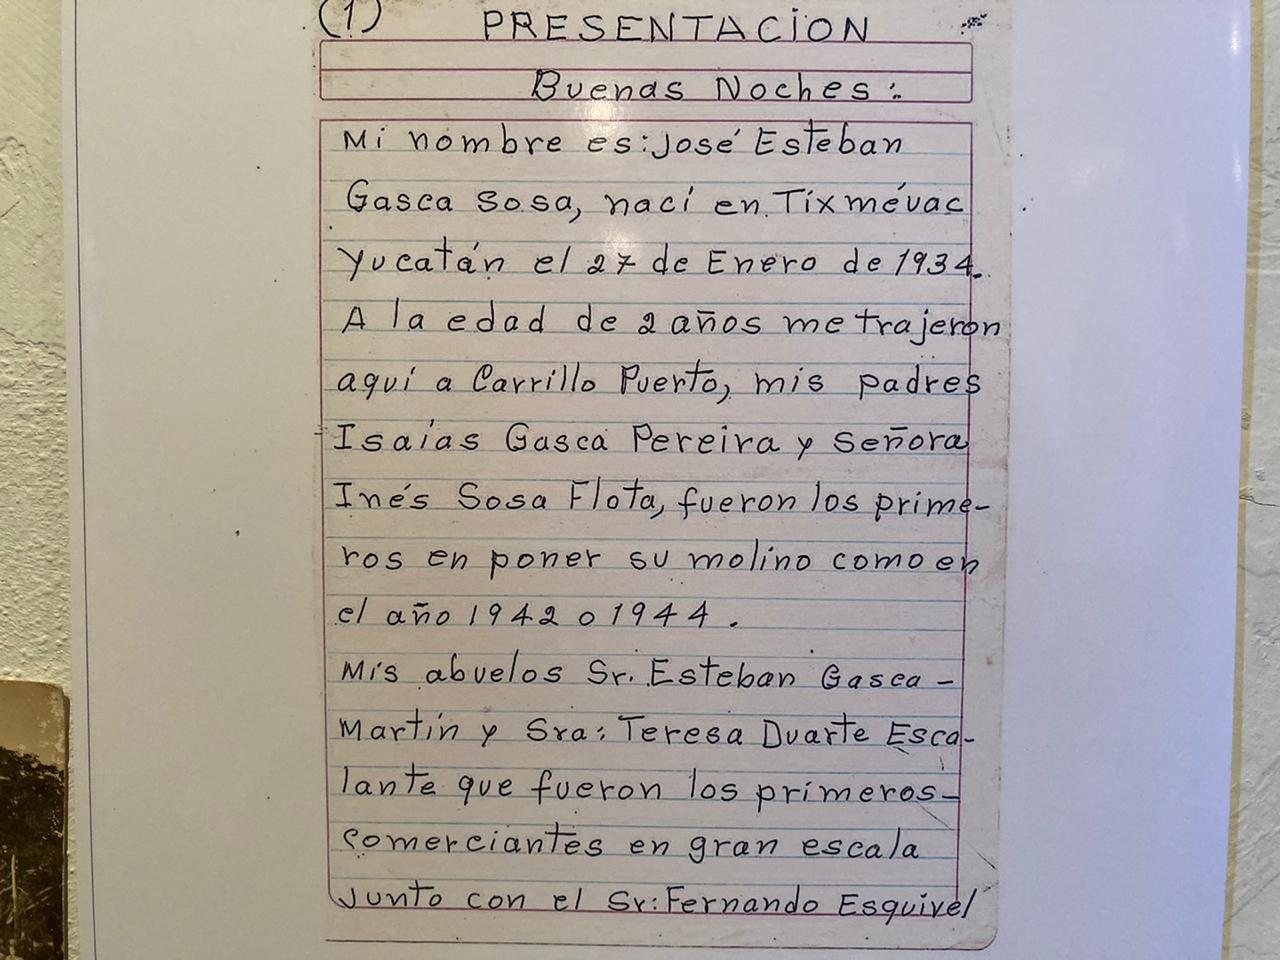 (1) PRESENTACION
Buenas Noches:
Mi nombre es: José Esteban
Gasca Sosa, nací en Tixmévac
Yucatán el 27 de Enero de 1934.
A la edad de 2 años me trajeron
aquí a Carrillo Puerto, mis padres
Isaías Gasca Pereira y Señora
Inés Sosa Flota, fueron los prime-
ros en poner su molino como en
el año 1942 o 1944.
Mis abuelos Sr. Esteban Gasca-
Martín y Sra: Teresa Duarte Esca-
lante que fueron los primeros-
comerciantes en gran escala
Junto con el Sr: Fernando Esquivel